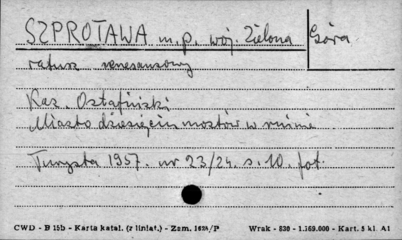 SZPROTAWA m.p. woj. Zielona Góra
ratusz renesansowy
Kaz. Ostafiński
Miasto dziesięciu mostów w ruinie
Turysta 1957. nr 23/24. s. 10. fot.
CWD - B 15b - Karta katal. (z liniat.) - Zam. 162A/P Wrak - 830 - 1.169.000 - Kart. 5 kl. A1